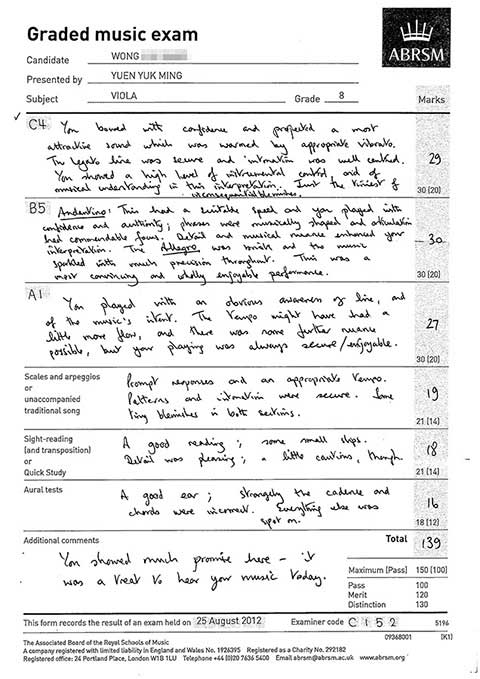 Graded music exam
ABRSM
Candidate WONG
Presented by YUEN YUK MING
Subject VIOLA Grade 8 Marks
C4 You bowed with confidence and projected a most
attractive sound which was warmed by appropriate vibrato.
The legato line was secure and intonation was well centred.
You showed a high level of instrumental control, and of
musical understanding in this interpretation. Just the tiniest of
inconsequential blemishes.
29
30 (20)
B5 Andantino: This had a suitable speed and you played with
confidence and authority; phrases were musically shaped and articulation
had commendable focus. Detail and musical nuance enhanced your
interpretation. The Allegro was brisk and the music
sparkled with much precision throughout. This was a
most convincing and wholly enjoyable performance.
30
30 (20)
A1 You played with an obvious awareness of line, and
of the music's intent. The tempo might have had a
little more flow, and there was some further nuance
possible, but your playing was always secure/enjoyable.
27
30 (20)
Scales and arpeggios
or
unaccompanied
traditional song
Prompt responses and an appropriate tempo.
Patterns and intonation were secure. Some
tiny blemishes in both sections.
19
21 (14)
Sight-reading
(and transposition)
or
Quick Study
A good reading; some small slips.
Detail was pleasing; a little cautious, though.
18
21 (14)
Aural tests
A good ear; strangely the cadence and
chords were incorrect. Everything else was
spot on.
16
18 (12)
Additional comments
You showed much promise here – it
was a treat to hear your music today.
Total 139
Maximum [Pass] 150 (100)
Pass 100
Merit 120
Distinction 130
This form records the result of an exam held on 25 August 2012 Examiner code C 152 5196
09368001 [K1]
The Associated Board of the Royal Schools of Music
A company registered with limited liability in England and Wales No. 1926395 Registered as a Charity No. 292182
Registered office: 24 Portland Place, London W1B 1LU Telephone +44 (0)20 7636 5400 Email abrsm@abrsm.ac.uk www.abrsm.org